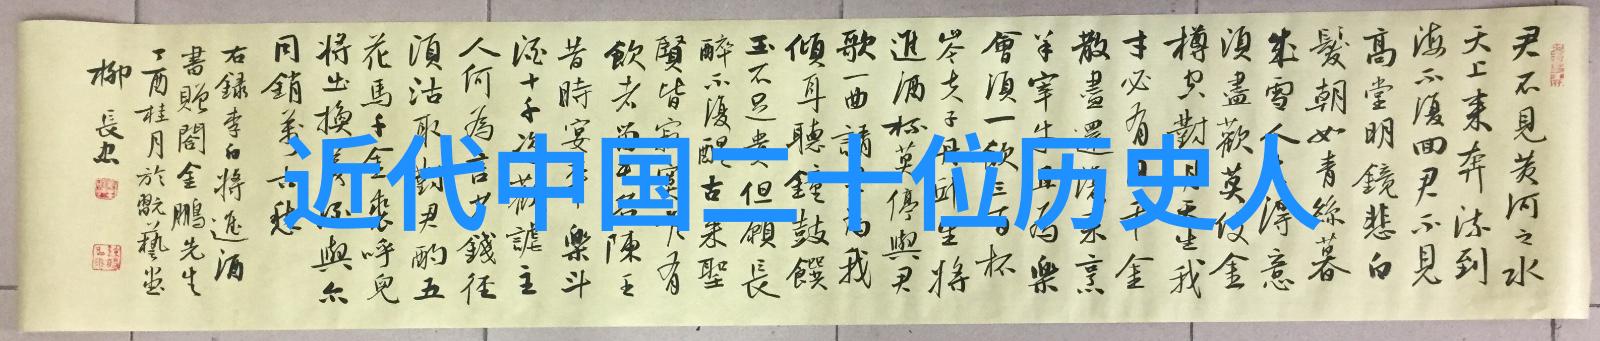 君不見黃河之水
天上来奔流到
海不復回君不見
高堂明鏡悲白
髮朝如青絲暮
成雪人得意
須盡歡莫使金
樽空對月天生我
才必有用千金
散盡還復来烹
羊宰牛且為樂
會須一飲三百杯
岑夫子丹邱生將
進酒杯莫停與君
歌一曲請君為我
傾耳聽鐘鼓饌
玉不足貴但願長
醉不復醒古来聖
賢皆寂寞惟有
飲者留名陳王
昔時宴樂斗
酒十千恣歡謔主
人何為言少錢徑
須沽取對君酌五
花馬千金裘呼兒
將出換美酒與尔
同銷萬古愁
右録李白將進酒
書贈閣金鵬先生
丁酉桂月於翫藝堂
柳長忠
近代中国二十位历史人